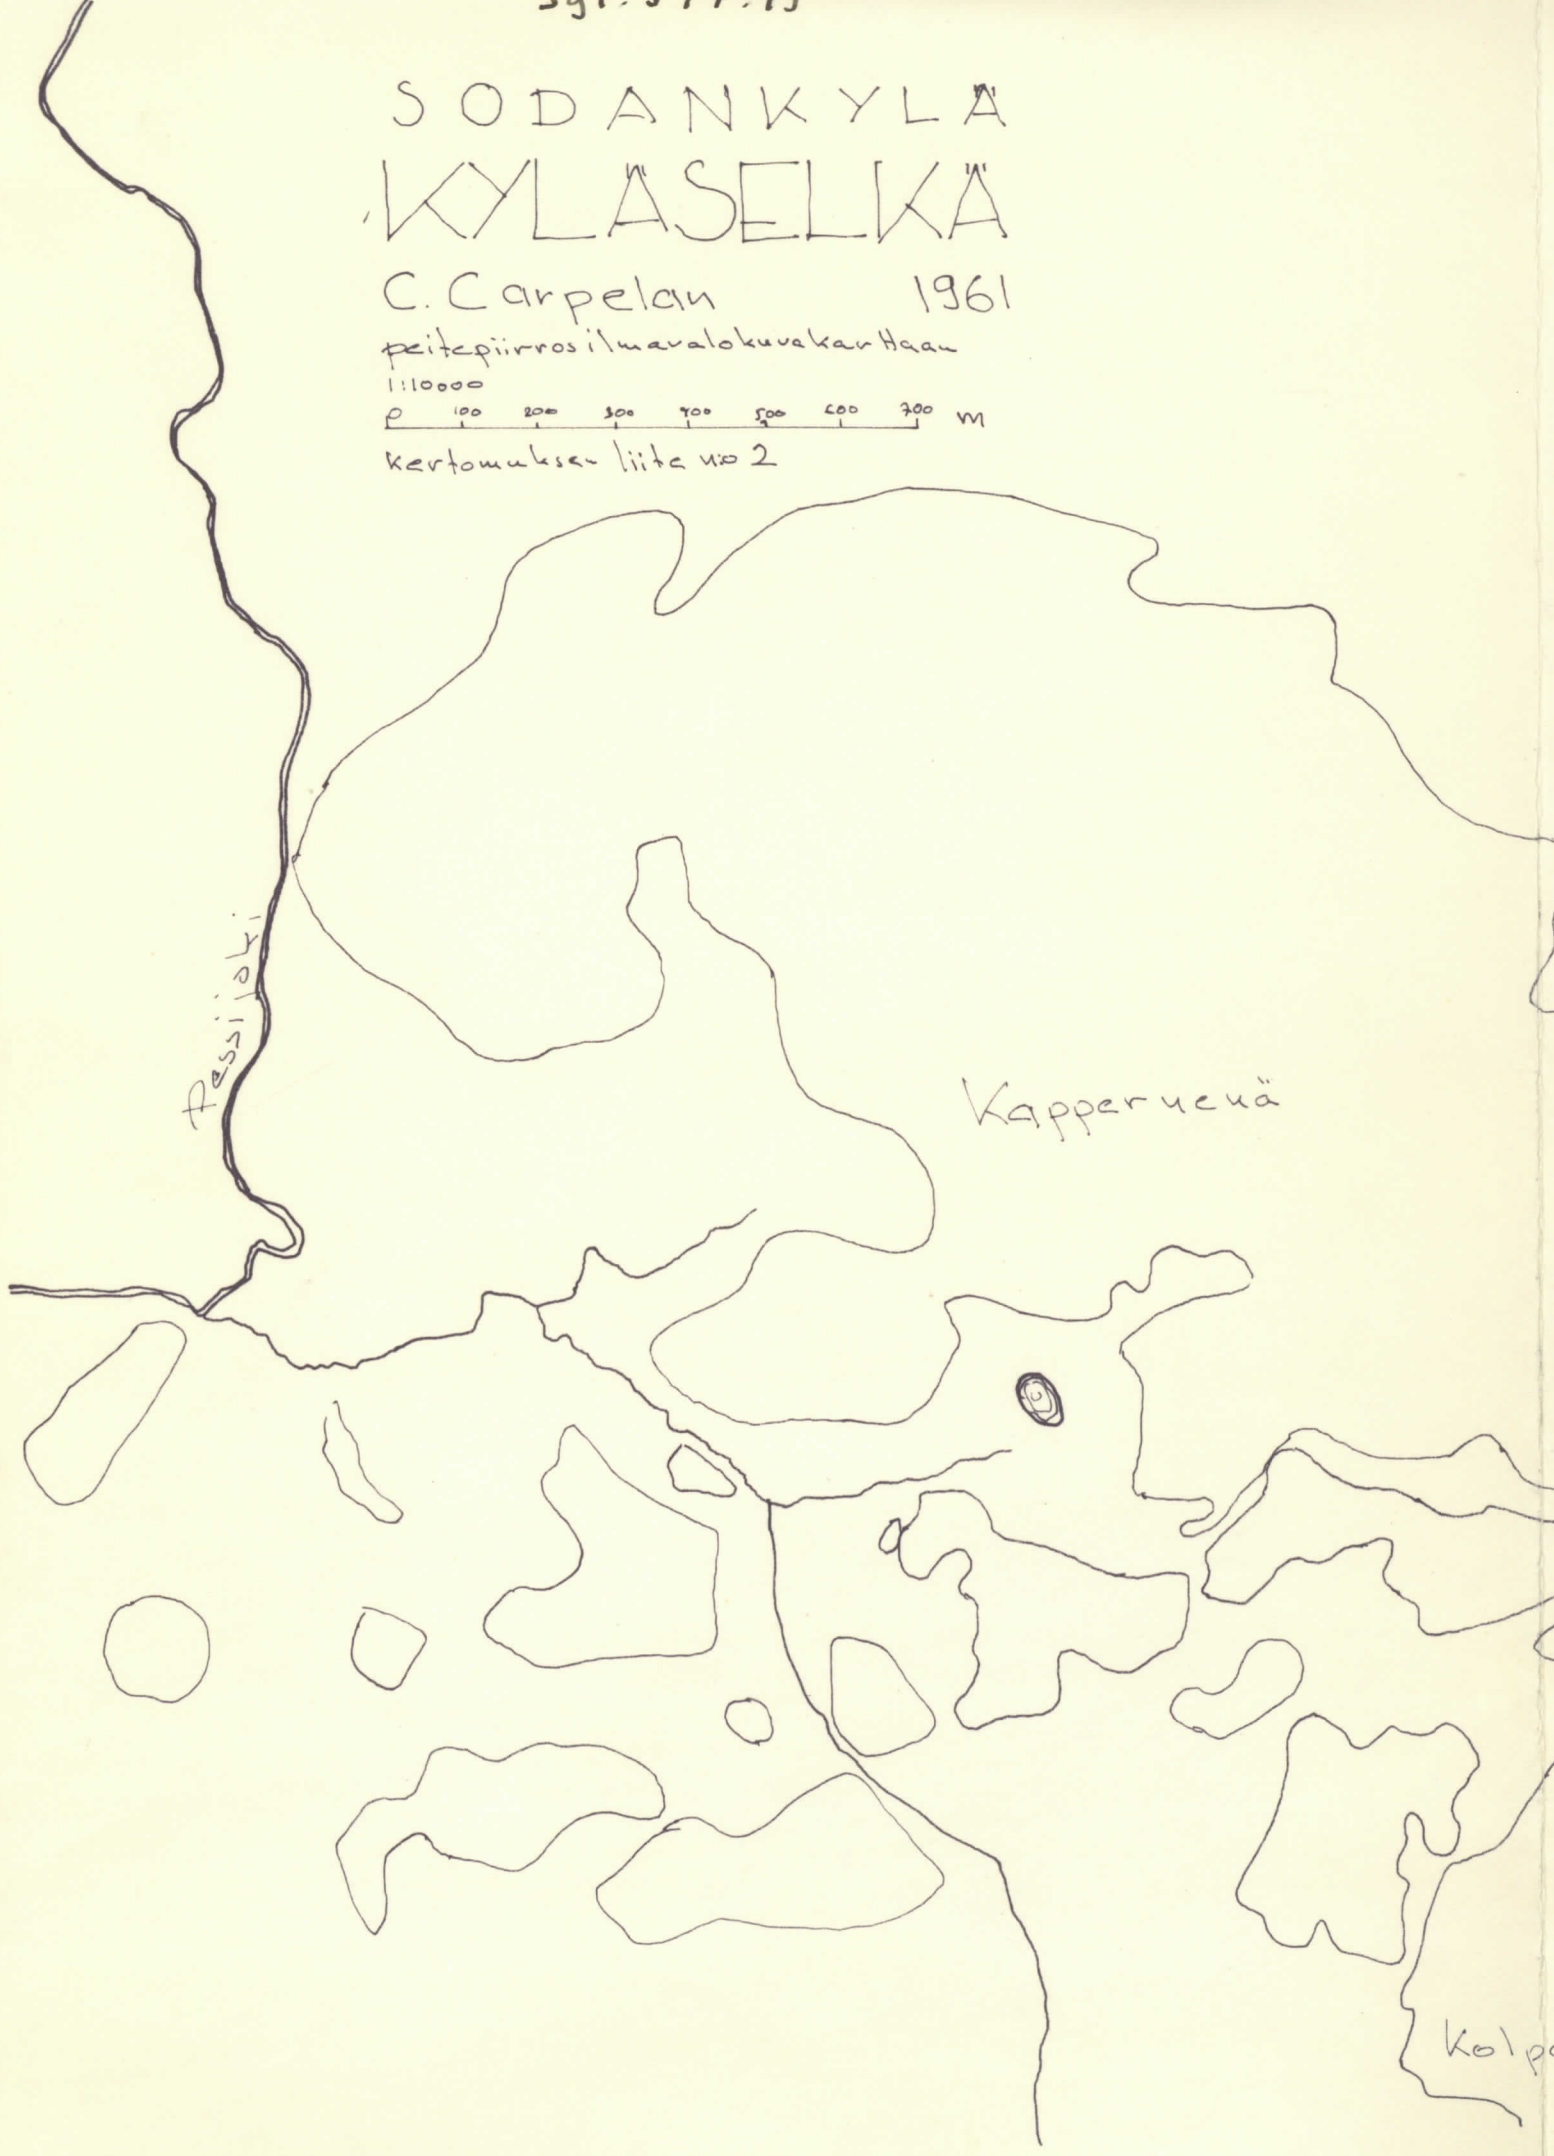 SODANKYLÄ
KYLÄSELKÄ
C. Carpelan 1961
peitepiirros ilmavalokuvakarttaan
1:10000
0 100 200 300 400 500 600 700 m
kertomuksen liite n:o 2
Pessijoki
Kappervenä
Kolp